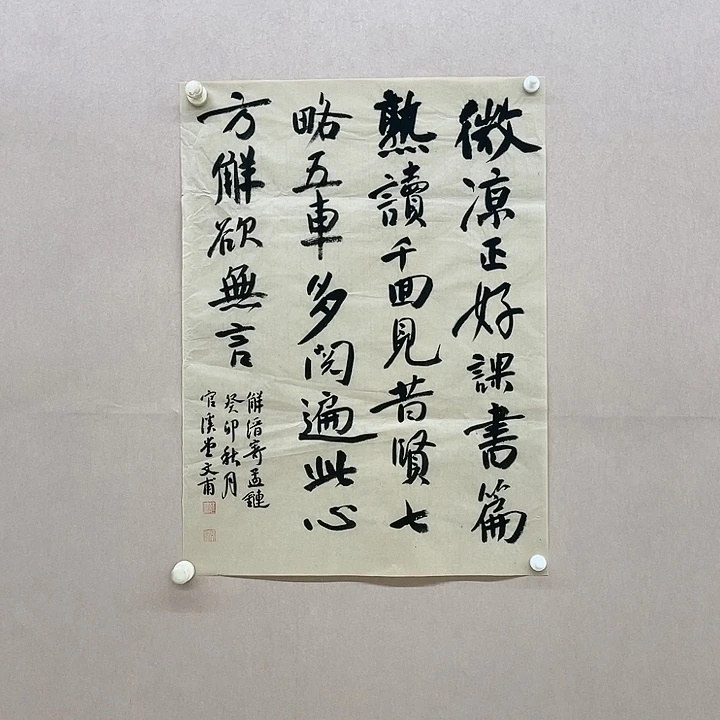 微凉正好課書篇
熟讀千回見昔賢七
略五車多閱遍此心
方解欲無言
解縉寄孟鏈
癸卯秋月
官溪堂文甫